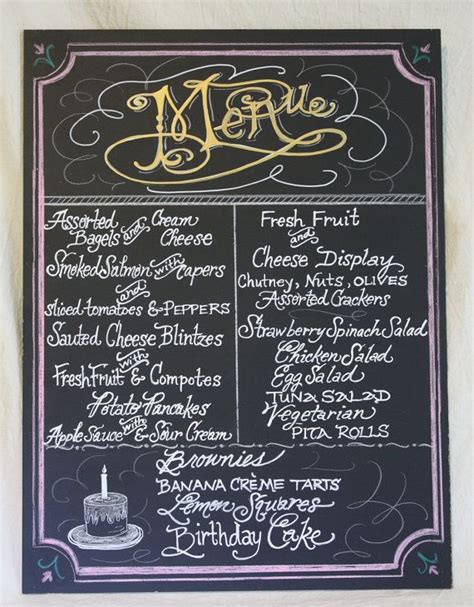 Menu
Assorted and Cream
Bagels Cheese
Smoked Salmon with Capers
and
sliced tomatoes & PEPPERS
Sauted Cheese Blintzes
with
Fresh Fruit & Compotes
Potato Pancakes
with
Apple Sauce & Sour Cream
Fresh Fruit
and
Cheese Display
Chutney, Nuts, OLIVES
Assorted Crackers
Strawberry Spinach Salad
Chicken Salad
Egg Salad
TUNA SALAD
Vegetarian
PITA ROLLS
Brownies
BANANA CRÈME TARTS
Lemon Squares
Birthday Cake